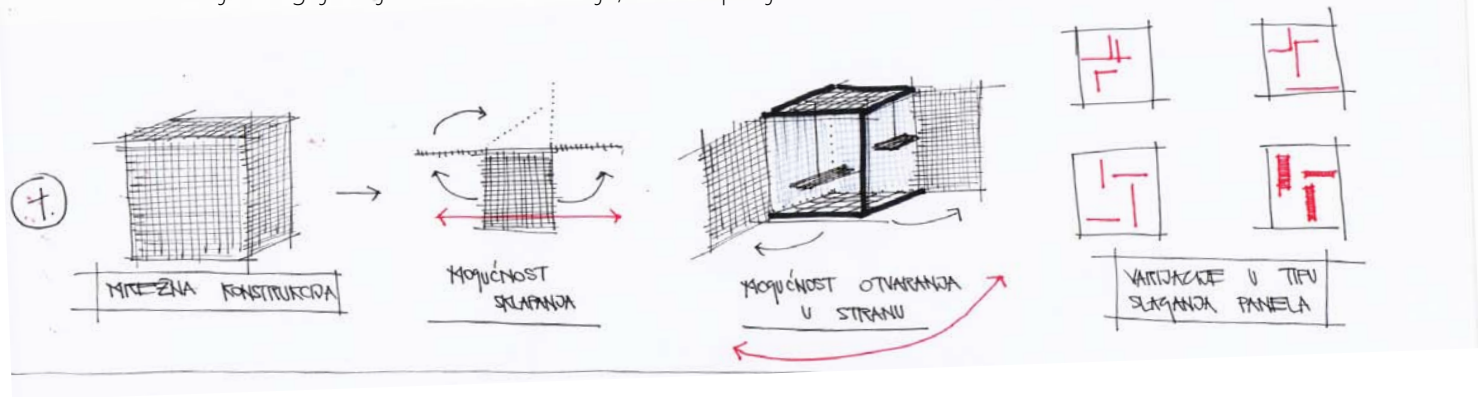 MREŽNA KONSTRUKCIJA
MOGUĆNOST
SKLAPANJA
MOGUĆNOST OTVARANJA
U STRANU
VARIJACIJE U TIPU
SLAGANJA PANELA